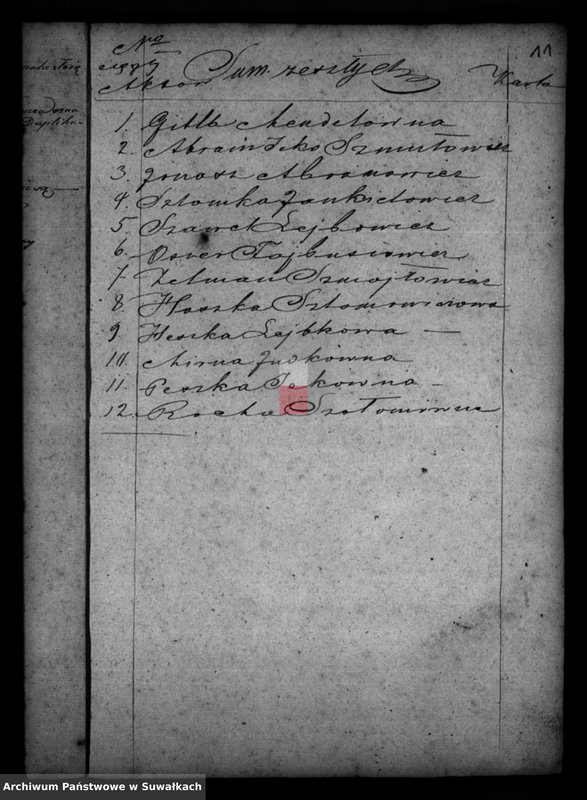 No
Aktów Sum. zeszłych Karta
11
1. Gittla Mendelowna
2. Abram Icko Szmułowicz
3. Jonasz Abramowicz
4. Szlomka Jankielowicz
5. Szawel Lejbowicz
6. Owser Fajbusiowicz
7. Zelman Szmojłowicz
8. Haszka Szlomowiczowa
9. Heszka Lejbkowa —
10. Mirna Judkowna
11. Peszka Ickowna —
12. Rocha Szołomowicz
Archiwum Państwowe w Suwałkach